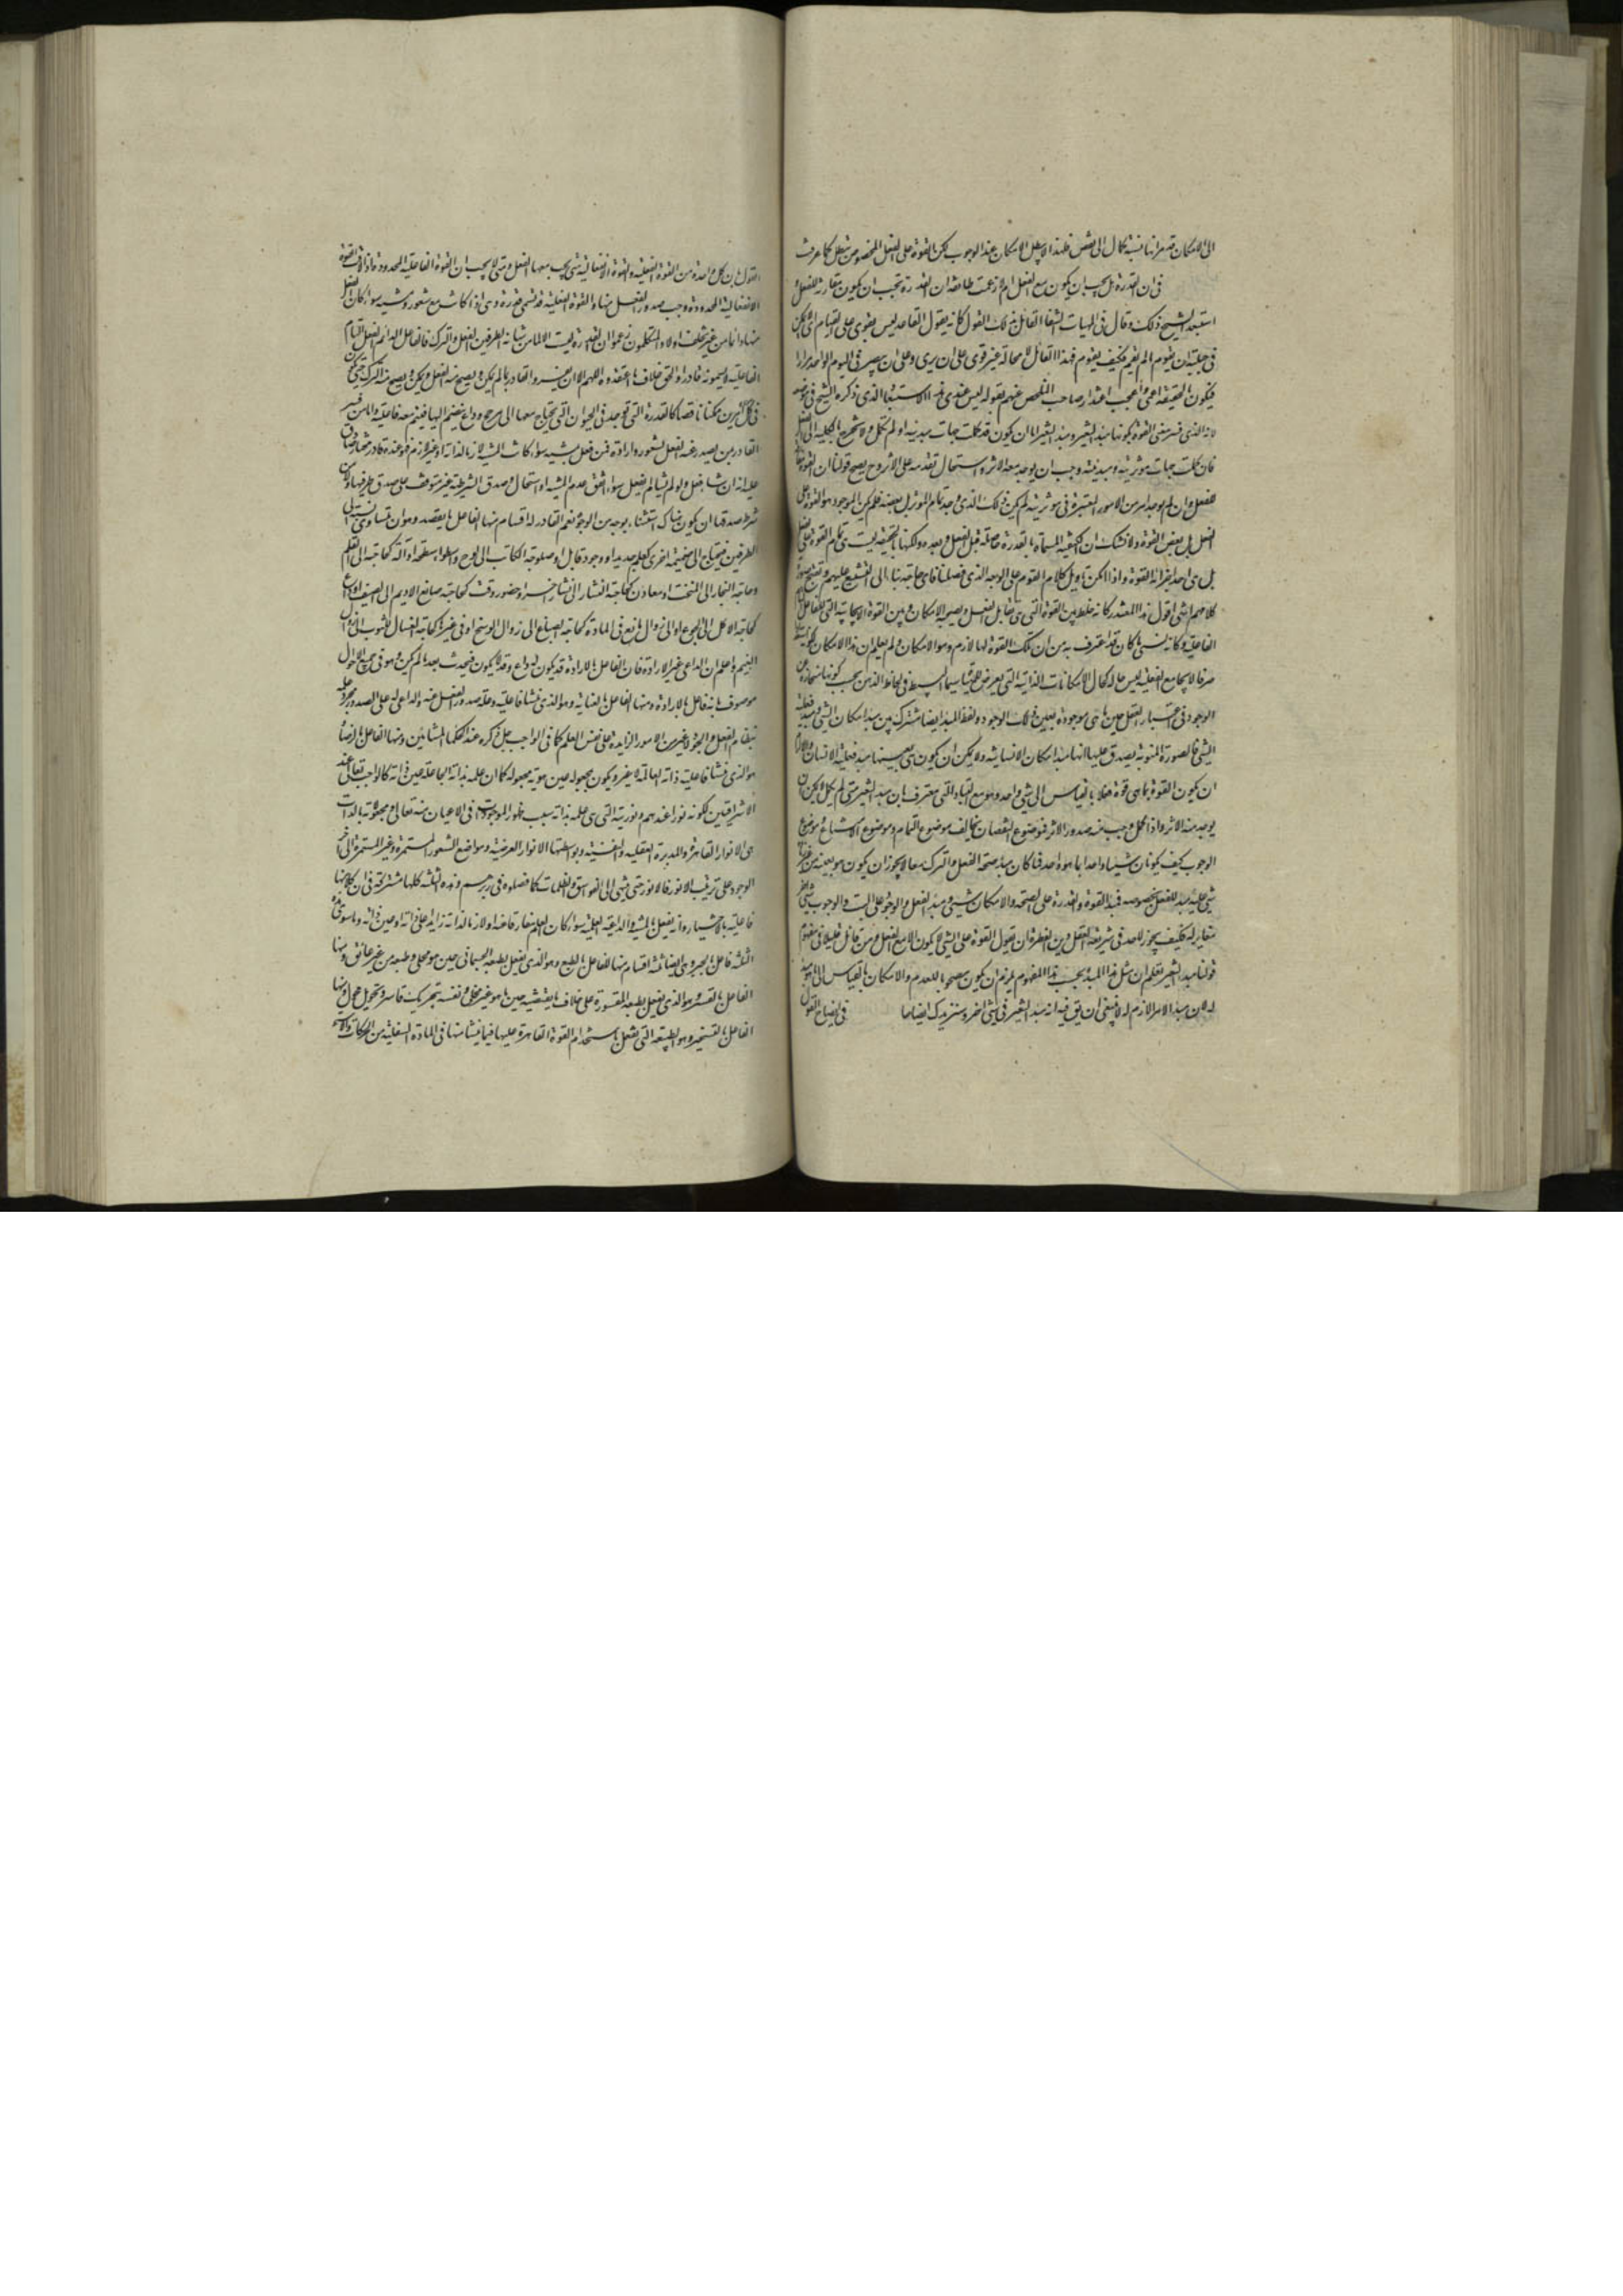 الى الامكان قصرانها نسبة كمال الى نقص فلهذا لا يبطل الامكان عند الوجوب لكن القوة على الفعل المخصوص تبطل كما عرفت
فى ان القدرة هل يجب ان يكون مع الفعل ام لا زعمت طائفة ان القدرة تجب ان يكون مقارنة للفعل و
استبعد الشيخ ذلك وقال فى الهيات الشفا القائل بذلك القول كانه يقول القاعد ليس يقوى على القيام اى لا يمكن
فى جبلته ان يقوم ما لم يقم فكيف يقوم فهذا القائل لا محالة غير قوى على ان يرى وعلى ان يبصر فى اليوم الواحد مرارا
فيكون بالحقيقة اعمى واعجب اعتذار صاحب الملخص عنهم بقوله ليس عندى هذا الاستبعاد الذى ذكره الشيخ فى موضعه
لانه الذى فسر معنى القوة بكونها مبدء التغير ومبدء التغير اما ان يكون قد كملت جهات مبدئيته او لم تكمل ولم تخرج بالكلية الى الفعل
فان كملت جهات مؤثريته ومبدئيته وجب ان يوجد معه الاثر واستحال تقدمه على الاثر وح يصح قولنا ان القوة مع
الفعل وان لم يوجد امر من الامور المعتبرة فى مؤثريته لم يكن ذلك الذى وجد تمام المؤثر بل بعضه فلم يكن الموجود هو القوة على
الفعل بل بعض القوة ولا نشك ان الكيفية المسماة بالقدرة حاصلة قبل الفعل وبعده ولكنها بالحقيقة ليست هى تمام القوة على الفعل
بل هى احد اجزاء القوة واذا امكن تأويل كلام القوم على الوجه الذى فصلناه فاى حاجة بنا الى التشنيع عليهم وتقبيح صورة
كلامهم انتهى اقول هذا المعتذر كانه خلط بين القوة التى هى تقابل الفعل ويصحبه الامكان وبين القوة الايجابية التى للفاعل التام
الفاعلية وكانه نسى ما كان قد اعترف به من ان تلك القوة لها لازم وهو الامكان ولم يعلم ان هذا الامكان لكونه
صرفا لا يجامع الفعلية ليس حاله كحال الامكانات الذاتية التى يعرض للمهيات سيما البسيط فى لحاظ الذهن بحسب كونها منحازة عن
الوجود فى اعتبار العقل حين ما هى موجودة بعين ذلك الوجود ولفظ المبدء ايضا مشترك بين مبدء امكان الشئ ومبدء فعلية
الشئ فالصورة المنوية يصدق عليها انها مبدء امكان الانسانية ولا يمكن ان يكون هى بعينها مبدء فعلية الانسان ولا يلزم
ان يكون القوة بما هى قوة فعلا بالقياس الى شئ واحد وهو مع انتباهه للتى معترف بان مبدء التغير متى لم يكمل لا يمكن ان
يوجد منه الاثر واذا كمل وجب منه صدور الاثر فموضوع النقصان يخالف موضوع التمام وموضوع الامتناع موضوع
الوجوب كيف يكونان شيئا واحدا بما هو واحد فما كان مبدء صحة الفعل والترك معا لا يجوز ان يكون هو بعينه من غير زيادة
شئ عليه مبدء للفعل بخصوصه فمبدء القوة والقدرة على الصحة والامكان شئ ومبدء الفعل والوجود على البت والوجوب شئ اخر
متغاير له فكيف يجوز لاحد فى شريعة العقل ودين الفطرة ان يقول القوة على الشئ لا يكون الا مع الفعل ومن تأمل قليلا فى مفهوم
قولنا مبدء التغير تعلم ان مثل هذا المبدء بحسب هذا المفهوم يلزم ان يكون مصحوبا للعدم والامكان بالقياس الى ما هو مبدء
له لان مبدء الامر اللازم له لا ينبغى ان يق فيه انه مبدء التغير فى شئ اخر وسنزيدك ايضاحا فى ايضاح القول
القول بان كل واحدة من القوة الفعلية والقوة الانفعالية متى يجب معها الفعل ومتى لا يجب ان القوة الفاعلية المحدودة اذا لاقت القوة
الانفعالية المحدودة وجب صدور الفعل منها والقوة الفعلية قد تسمى قدرة وهى اذا كانت مع شعور ومشية سواء كان الفعل
منها دائما من غير تخلف او لا والمتكلمون زعموا ان القدرة ليست الا لما من شانه الطرفين الفعل والترك فالفاعل الدائم الفعل التام
الفاعلية لا يسمونه قادرا والحق خلاف ما اعتقدوه اللهم الا ان يفسر القادر بما لم يكن ويصح منه الفعل ويمكن ويصح منه الترك
القادر من يصدر عنه الفعل بشعور وارادة فمن فعل بمشية سواء كانت المشية لازما لذاته او غير لازم فهو عنده قادر مختار صادق
عليه انه ان شاء فعل ولو لم يشا لم يفعل سواء اتفق عدم المشية او استحال وصدق الشرطية غير متوقف على صدق طرفيها ولا من
شرط صدقها ان يكون هناك استثناء بوجه من الوجوه نعم القادر له اقسام منها الفاعل بالقصد وهو ان تساوى نسبته الى
الطرفين فيحتاج الى ضميمة اخرى كعلم جديد او وجود قابل او صلوحه كحاجة الكاتب الى لوح واسطه او آلة كحاجته الى القلم
وحاجة النجار الى المنحت او معاون كحاجة النشار الى نشار اخر او حضور وقت كحاجة صانع الاديم الى الصيف او داع
كحاجة الاكل الى الجوع او الى زوال مانع فى المادة كحاجة الصباغ الى زوال الوسخ او فى غيرها كحاجة الغسال للثوب الى زوال
الغيم واعلم ان الداعى غير الارادة فان الفاعل بالارادة قد يكون له داع وقد لا يكون فيحدث بعد ما لم يكن وهو فى جميع الاحوال
موصوف بانه فاعل بالارادة ومنها الفاعل بالعناية وهو الذى منشا فاعليته وعلة صدور الفعل عنه والداعى له على الصدور مجرد علمه
بنظام الفعل والجود لا غير من الامور الزايدة على نفس العلم كما فى الواجب جل ذكره عند الحكماء المشائين ومنها الفاعل بالرضا
هو الذى منشا فاعليته ذاته العالمة لا غير ويكون مجعوله عين هوية مجعوله كما ان علمه بذاته الجاعلة عين ذاته كالواجب تعالى عند
الاشراقيين لكونه نورا عندهم ونوريته التى هى علمه بذاته سبب ظهور الموجودات فى الاعيان منه تعالى
هى الانوار القاهرة والمدبرة العقلية والنفسية وبواسطتها الانوار العرضية ومواضع الشعور المستمرة وغير المستمرة الى اخر
الوجود على ترتيب الانور فالانور حتى ينتهى الى الغواسق والظلمات كما فصلوه فى زبرهم وهذه الثلثة كلها مشتركة فى ان كلا منها
فاعلية بالاختيار وانه يفعل بالمشية والداعية العلمية سواء كان العلم مفارقا عنه او لازما لذاته زايدا على ذاته او عين ذاته وما سوى هذه
الثلثة فاعل بالجبر وهى ايضا ثلثة اقسام منها الفاعل بالطبع وهو الذى يفعل بطبعه الجسمانى حين هو مخلى وطبعه من غير عائق ومنها
الفاعل بالقسر وهو الذى يفعل بطبعه المقسورة على خلاف ما يقتضيه حين ما هو غير مخلى ونفسه بتحريك قاسر وتحويل محول ومنها
الفاعل بالتسخير وهو الطبيعة التى تفعل باستخدام القوة القاهرة عليها فيما ينشا منها فى المادة السفلية من الحركات والاستحالات